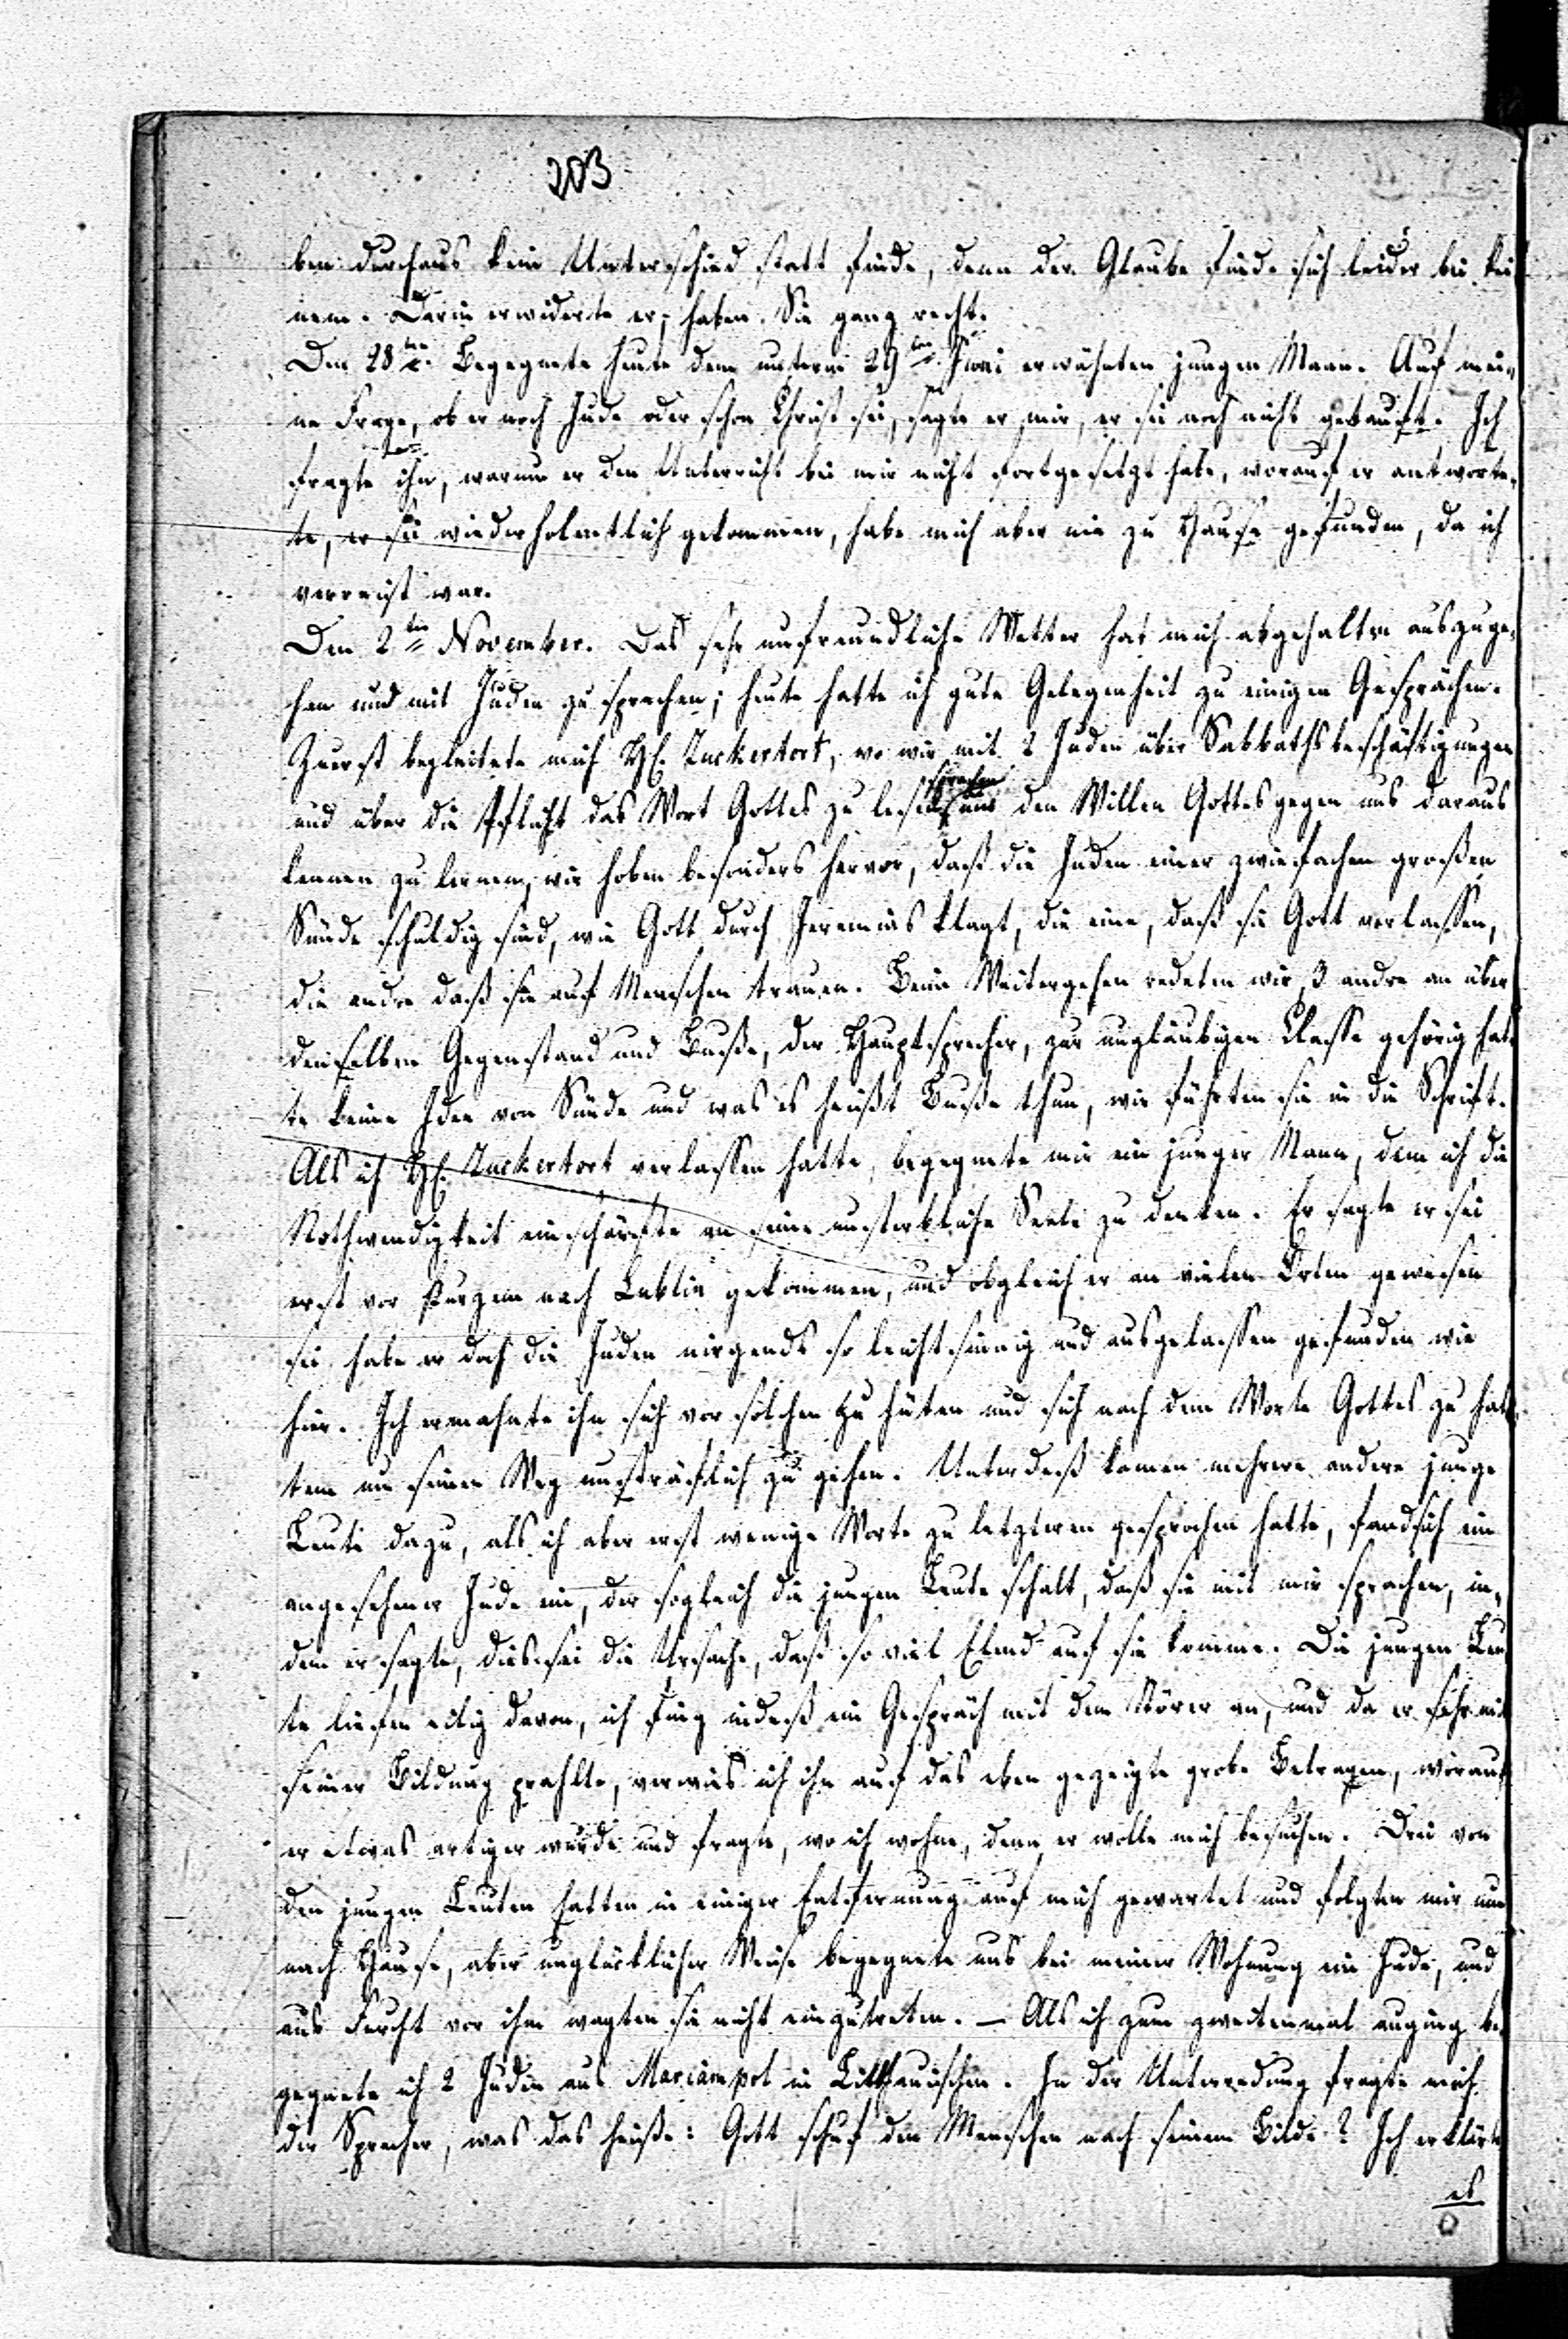 203
ben durchaus kein Unterschied statt finde, denn der Glaube finde sich leider bei kei
nem. Darin erwiderte er, haben Sie ganz recht.
Den 28ten. Begegnete heute dem unterm 29ten Juni erwähnten jungen Mann. Auf mei¬
ne Frage, ob er noch Jude oder schon Christ sei, sagte er mir, er sei noch nicht getauft. Ich
fragte ihn, warum er den Unterricht bei mir nicht fortgesetzt habe, worauf er antworte¬
te, er sei wiederholentlich gekommen, habe mich aber nie zu Hause gefunden, da ich
verreist war.
Den 2ten November. Das sehr unfreundliche Wetter hat mich abgehalten auszuge¬
hen und mit Juden zu sprechen; heute hatte ich gute Gelegenheit zu einigen Gesprächen.
Zuerst begleitete mich H. Zuckertort, wo wir mit 2 Juden über Sabbathsbeschäftigungen
und über die Pflicht das Wort Gottes zu lesen sprachen um den Willen Gottes gegen uns daraus
kennen zu lernen, wir hoben besonders hervor, daß die Juden einer zwiefachen großen
Sünde schuldig sind, wie Gott durch Jeremias klagt, die eine, daß sie Gott verlassen,
die andre daß sie auf Menschen trauen. Beim Weitergehen redeten wir 3 andre an über
denselben Gegenstand und Buße, der Hauptsprecher, zur ungläubigen Classe gehörig hat¬
te keine Idee von Sünde und was es heißt Buße thun, wir führten sie in die Schrift.
Als ich H. Zuckertort verlassen hatte, begegnete mir ein junger Mann, dem ich die
Nothwendigkeit einschärfte an seine unsterbliche Seele zu denken. Er sagte er sei
erst vor kurzem nach Lublin gekommen, und obgleich er an vielen Orten gewesen
sei habe er doch die Juden nirgends so leichtsinnig und ausgelassen gefunden wie
hier. Ich ermahnte ihn sich vor solchen zu hüten und sich nach dem Worte Gottes zu hal¬
ten um seinen Weg unsträflich zu gehen. Unterdeß kamen mehrere andere junge
Leute dazu, als ich aber erst wenige Worte zu letzteren gesprochen hatte, fand sich ein
angesehener Jude ein, der sogleich die jungen Leute schalt, daß sie mit mir sprachen, in¬
dem er sagte, dies sei die Ursache, daß so viel Elend auf sie komme. Die jungen Leu
te liefen eilig davon, ich fing indeß ein Gespräch mit dem Störer an, und da er sehr mit
seiner Bildung prahlte, verwies ich ihn auf das eben gezeigte grobe Betragen, worauf
er etwas artiger wurde und fragte, wo ich wohne, denn er wolle mich besuchen. Drei von
den jungen Leuten hatten in einiger Entfernung auf mich gewartet und folgten mir nun
nach Hause, aber unglücklicher Weise begegnete uns bei meiner Wohnung ein Jude, und
aus Furcht vor ihm wagten sie nicht einzutreten. – Als ich zum zweitenmal ausging be
gegnete ich 2 Juden aus Mariampol in Litthauischen. In der Unterredung fragte mich
der Sprecher, was das heiße: Gott schuf den Menschen nach seinem Bilde? Ich erklärte
es